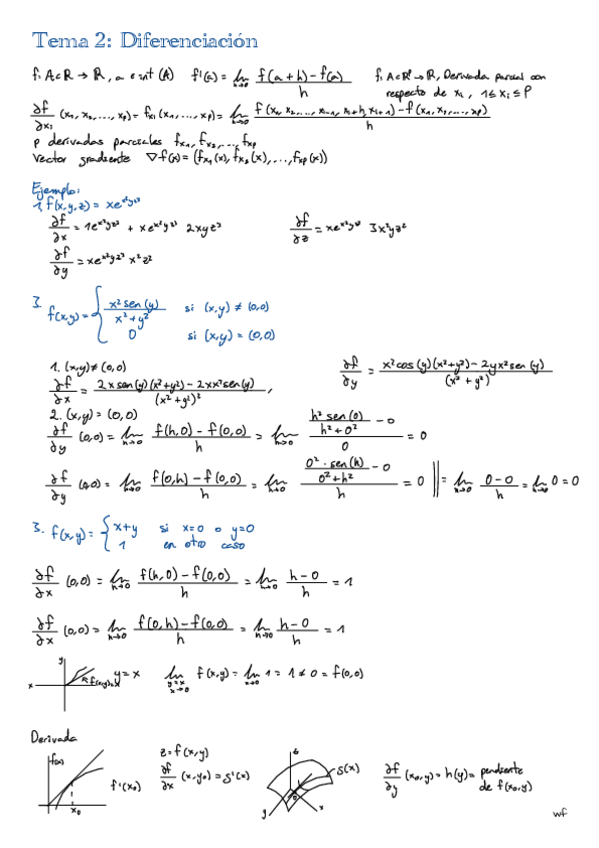 Tema 2: Diferenciación
f: A⊂R → R, a ∈ int(A) f'(a) = lim h→0 (f(a+h) - f(a))/h f: A⊂Rᵖ → R, Derivada parcial con
respecto de xᵢ, 1 ≤ xᵢ ≤ p
∂f/∂xᵢ (x₁, x₂, ..., xₚ) = fₓᵢ(x₁, ..., xₚ) = lim h→0 (f(x₁, x₂, ..., xᵢ₋₁, xᵢ+h, xᵢ₊₁) - f(x₁, x₂, ..., xₚ))/h
p derivadas parciales fₓ₁, fₓ₂, ..., fₓₚ
Vector gradiente ∇f(x) = (fₓ₁(x), fₓ₂(x), ..., fₓₚ(x))
Ejemplo:
1. f(x,y,z) = xe^(x²yz³)
∂f/∂x = 1e^(x²yz³) + xe^(x²yz³) 2xyz³ ∂f/∂z = xe^(x²yz³) 3x²yz²
∂f/∂y = xe^(x²yz³) x²z³
3. f(x,y) = { x² sen(y)/(x²+y²) si (x,y) ≠ (0,0)
0 si (x,y) = (0,0)
1. (x,y) ≠ (0,0)
∂f/∂x = (2x sen(y)(x²+y²) - 2xx² sen(y))/(x²+y²)², ∂f/∂y = (x² cos(y)(x²+y²) - 2yx² sen(y))/(x²+y²)
2. (x,y) = (0,0)
∂f/∂y (0,0) = lim h→0 (f(h,0) - f(0,0))/h = lim h→0 (h² sen(0)/(h²+0²) - 0)/0 = 0
∂f/∂y (0,0) = lim h→0 (f(0,h) - f(0,0))/h = lim h→0 (0²·sen(h)/(0²+h²) - 0)/h = 0 || = lim h→0 (0-0)/h = lim h→0 0 = 0
3. f(x,y) = { x+y si x=0 o y=0
1 en otro caso
∂f/∂x (0,0) = lim h→0 (f(h,0) - f(0,0))/h = lim h→0 (h-0)/h = 1
∂f/∂x (0,0) = lim h→0 (f(0,h) - f(0,0))/h = lim h→0 (h-0)/h = 1
y x y=x lim y=x x→0 f(x,y) = lim x→0 1 = 1 ≠ 0 = f(0,0)
Derivada
f(x) x₀ f'(x₀)
z = f(x,y)
∂f/∂x (x,y₀) = S'(x)
y x S(x)
∂f/∂y (x₀,y) = h(y) = pendiente
de f(x₀,y)
wf